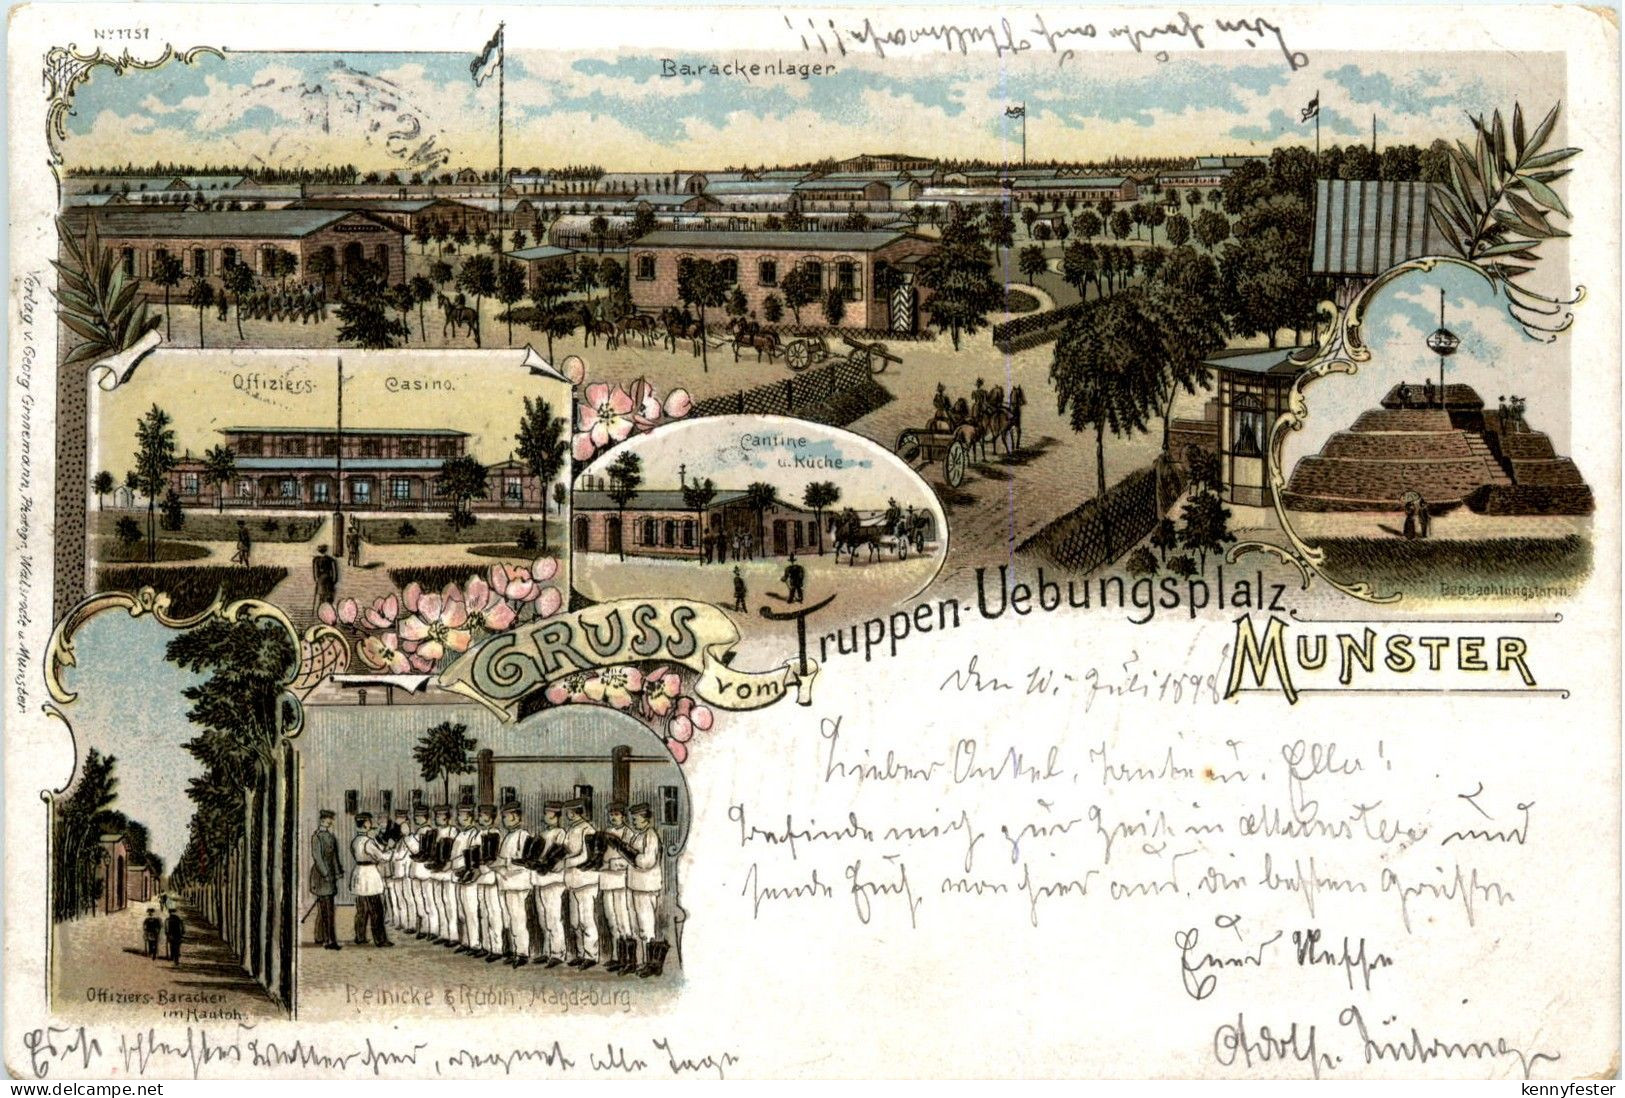 No 1151
Barackenlager.
MUNSTER
Offiziers- Casino.
Cantine
u. Küche
Beobachtungsturm.
Verlag v. Georg Grönemann, Photogr. Walsrode u. Munster.
GRUSS
vom
Truppen-Uebungsplatz
MUNSTER
Offiziers-Baracken
im Hauloh.
Reinicke & Rubin, Magdeburg.
den 10. Juli 1898.
Lieber Onkel, Tante u. Ella!
Befinde mich zur Zeit in Munster und
sende Euch von hier aus die besten Grüße
Euer Neffe
Adolf
Es ist schlechtes Wetter hier, regnet alle Tage
kennyfester